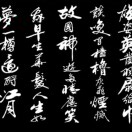 雄姿英發羽扇綸巾
談笑間檣櫓灰飛煙滅
故國神遊多情應笑
早生華髮人生如
夢一樽還酹江月